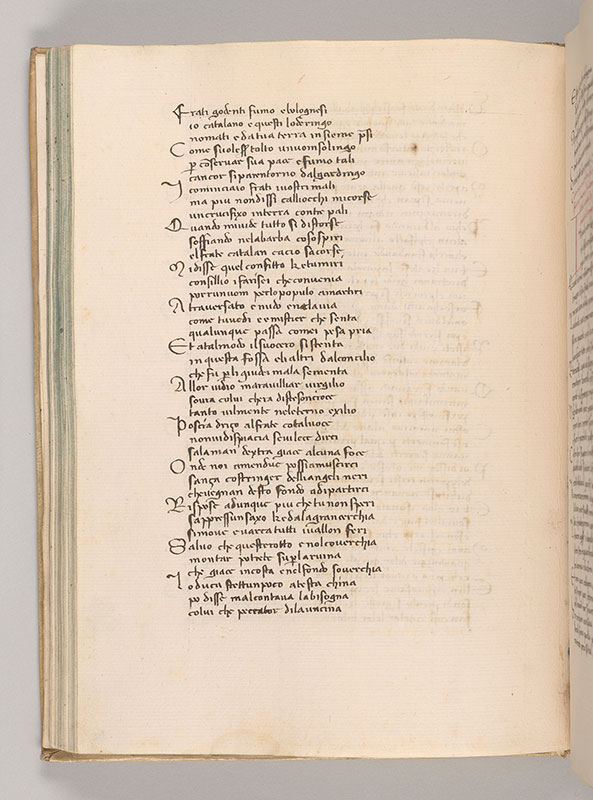 Frati godenti fumo e bolognesi
io catalano e questi loderingo
nomati e da tua terra insieme p̄si
Come suoless tolto unuom solingo
p cōservar sua pace e fumo tali
cancor si par entorno dal gardingo
I cominciaio frati i vostri mali
ma piu nondissi calliocchi mi corse
un crucifixo in terra con tre pali
Quando mi vide tutto si distorse
soffiando nela barba co sospiri
el frate catalan cacio sacorse
Mi disse quel confitto ke tu miri
consillio i farisei che convenia
porr un uom per lo popolo a martiri
A traversato e nudo en la via
come tu vedi e e mistier che senta
qualunque passa come i pesa pria
Et a tal modo il suocero si stenta
in questa fossa e li altri dal concilio
che fu p li giudei mala sementa
Allor vidio maravilliar virgilio
sovra colui chera disteso in croce
tanto vilmente nel eterno exilio
Poscia driço al frate cotal voce
non vi dispiacia se vi lece dirci
sa la man dextra giace alcuna foce
Onde noi amendue possiamo uscirci
sança costringer delli angeli neri
che vegnan desto fondo a dipartirci
Rispose adunque piu che tu non speri
sappressun saxo ke da la gran cerchia
si move e varca tutti i vallon feri
Salvo che questo e rotto e nol coverchia
montar potrete su p la ruina
che giace in costa e nel fondo soverchia
Lo duca stette un poco a testa china
po disse mal contava la bisogna
colui che peccator di la uncina